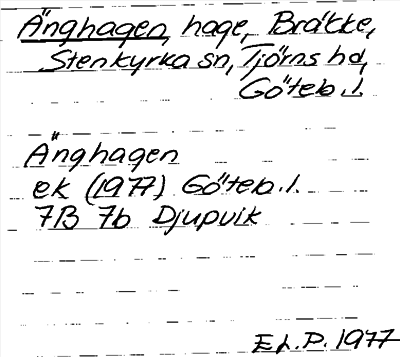 Änghagen, hage, Bräcke,
Stenkyrka sn, Tjörns hd,
Göteb. l.
Änghagen
ek (1977) Göteb. l.
7B 7b Djupvik
E.L.P. 1977